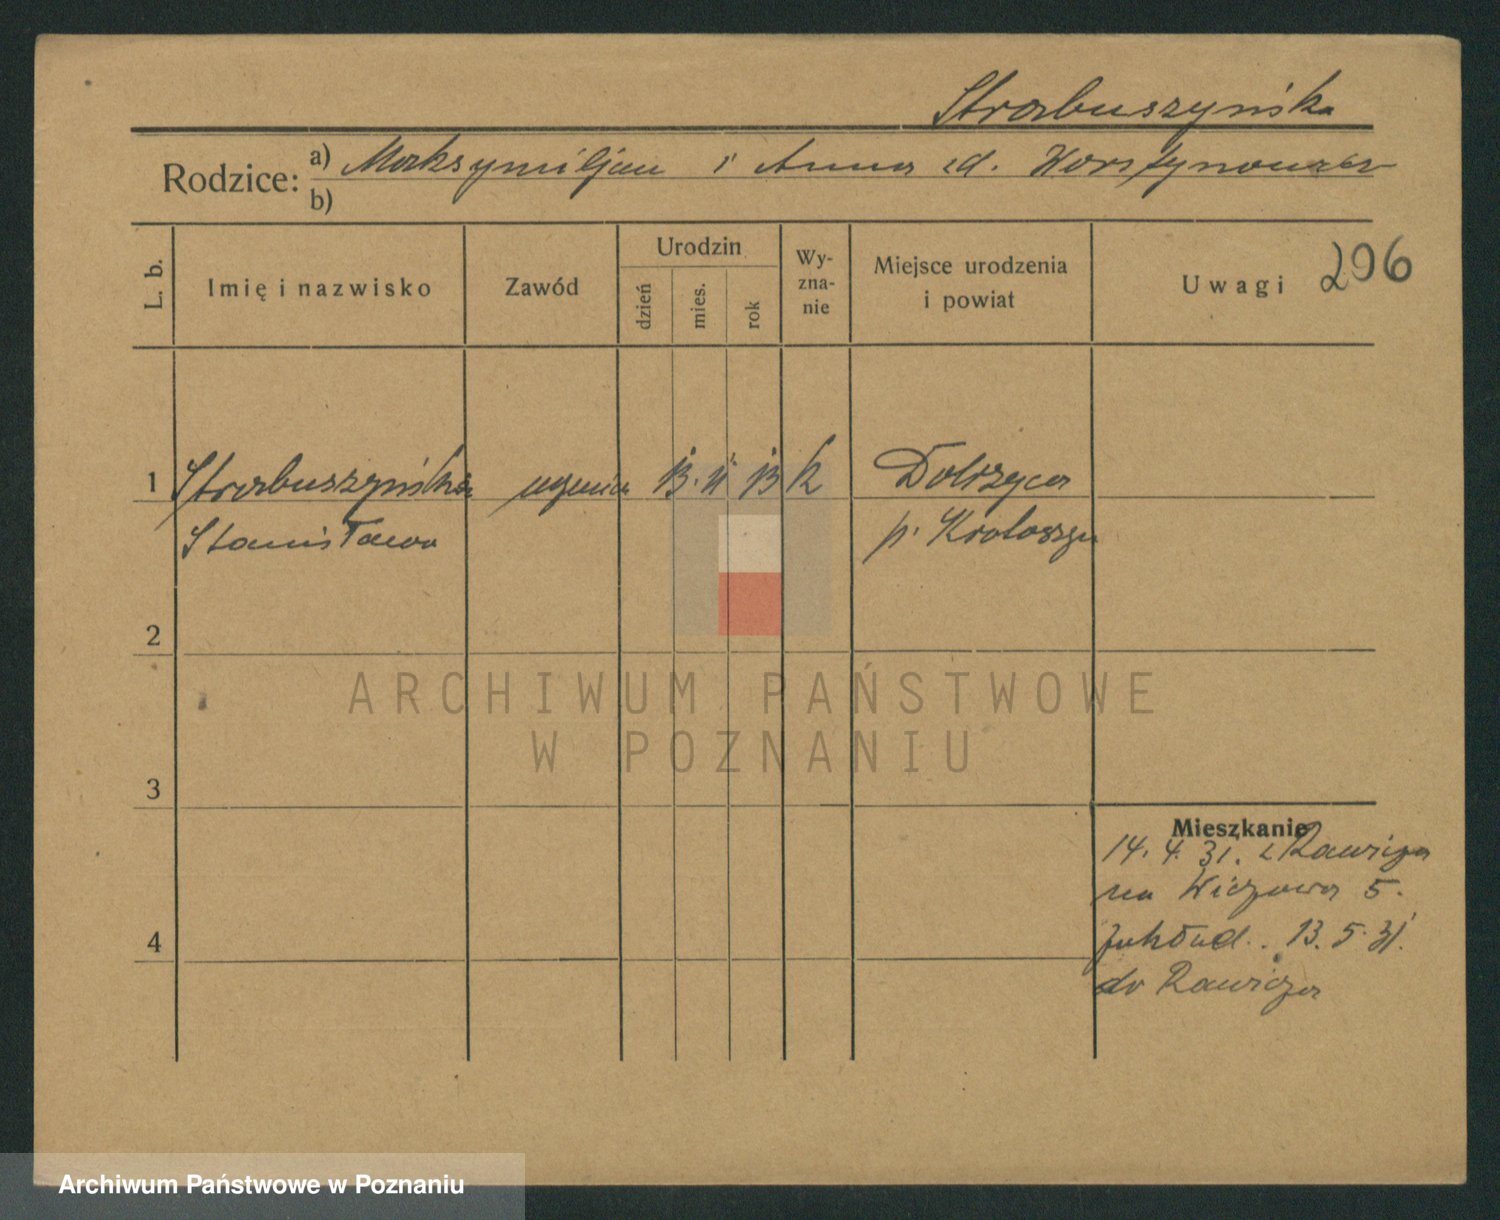 Strabuszyńska
Rodzice: a) Maksymiljan i Anna zd.
b)
L. b.
Imię i nazwisko
Zawód
Urodzin
dzień
mies.
rok
Wy-
zna-
nie
Miejsce urodzenia
i powiat
Uwagi
206
1 Strabuszyńska uczenica 13. 11 13 k Dobrzyca
Stanisława p. Krotoszyn
2
3
4
Mieszkanie
14. 4. 31. z Rawicza
na 5.
13. 5. 31.
do Rawicza
ARCHIWUM PAŃSTWOWE
W POZNANIU
Archiwum Państwowe w Poznaniu